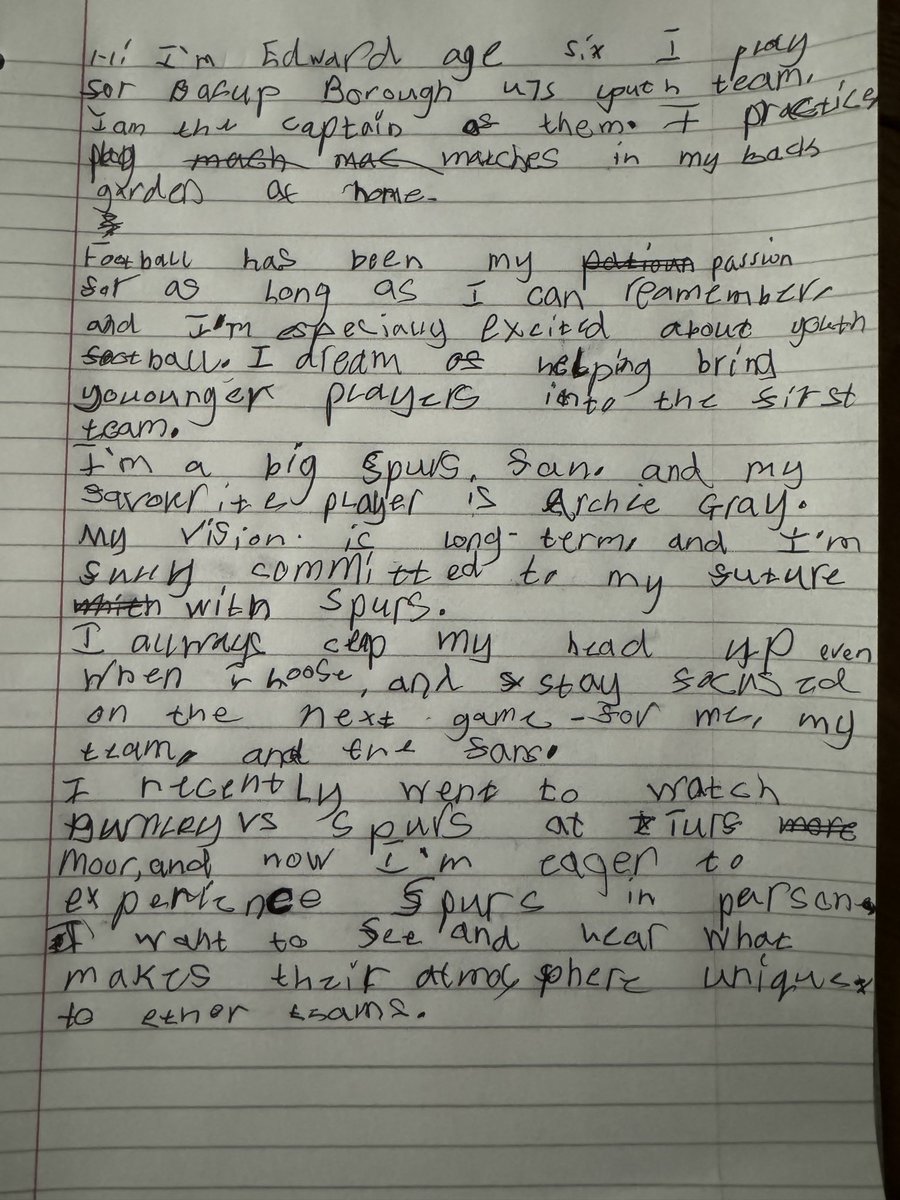 Hi I'm Edward age six I play
for Bacup Borough u7s youth team,
I am the captain of them. I practice
play mach mac matches in my back
garden at home.
Football has been my passion
for as long as I can reamember,
and I'm especially excited about youth
football. I dream of helping bring
youounger players into the first
team.
I'm a big Spurs, fan. and my
favourite player is Archie Gray.
My vision. is long-term, and I'm
fully committed to my future
which with Spurs.
I always ceap my head up even
when I loose, and stay focused
on the next game - for me, my
team, and the fans.
I recently went to watch
Burnley vs Spurs at Turf more
Moor, and now I'm eager to
experience Spurs in person.
I want to see and hear what
makes their atmosphere unique
to other teams.